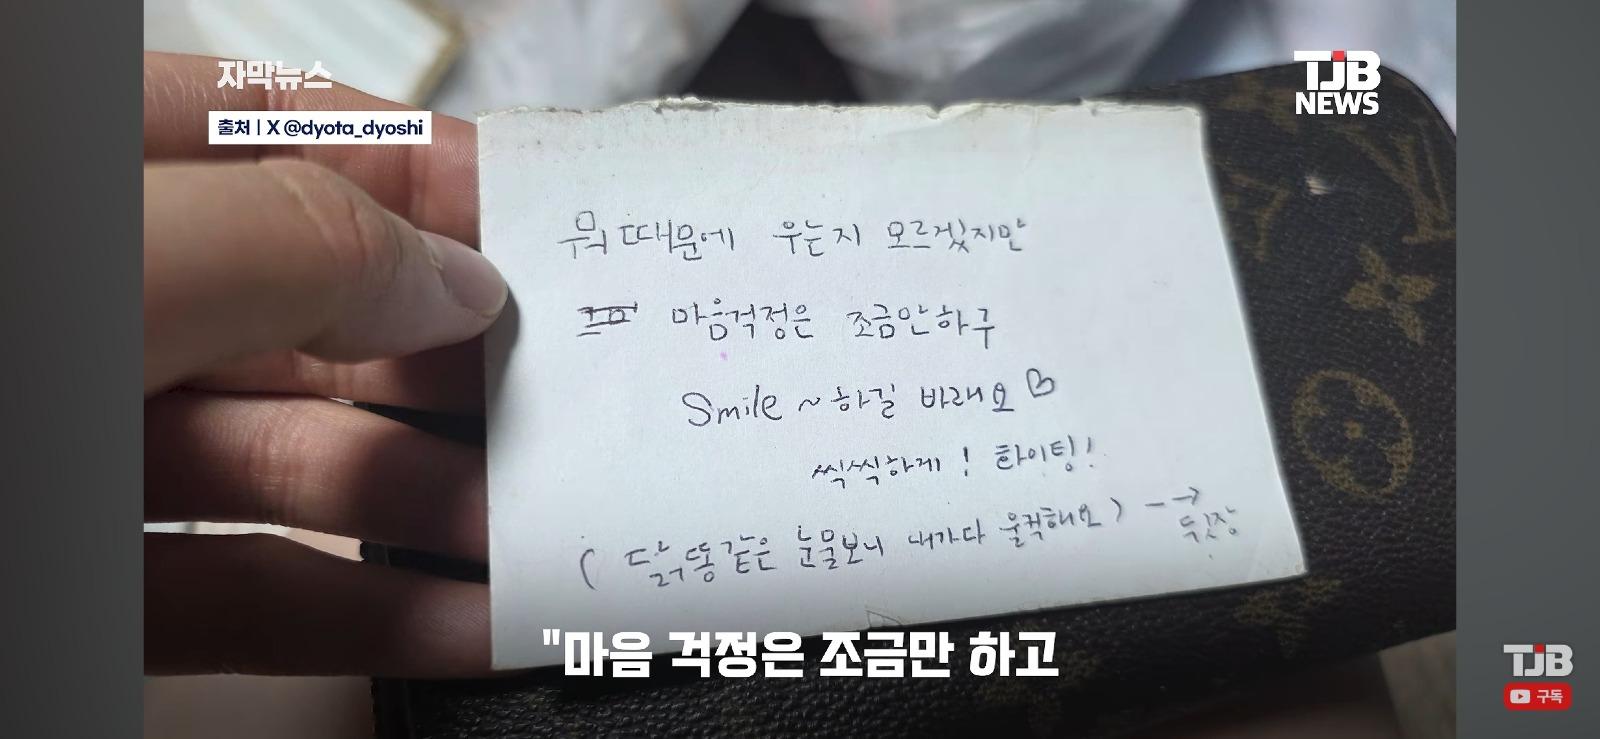 자막뉴스
출처 | X @dyota_dyoshi
TJB
NEWS
뭐 때문에 우는지 모르겠지만
마음걱정은 조금만하구
Smile ~ 하길 바래요 ♡
씩씩하게 ! 화이팅!
( 닭똥같은 눈물보니 내가다 울컥해요 ) -→
뒷장
"마음 걱정은 조금만 하고
TJB
구독